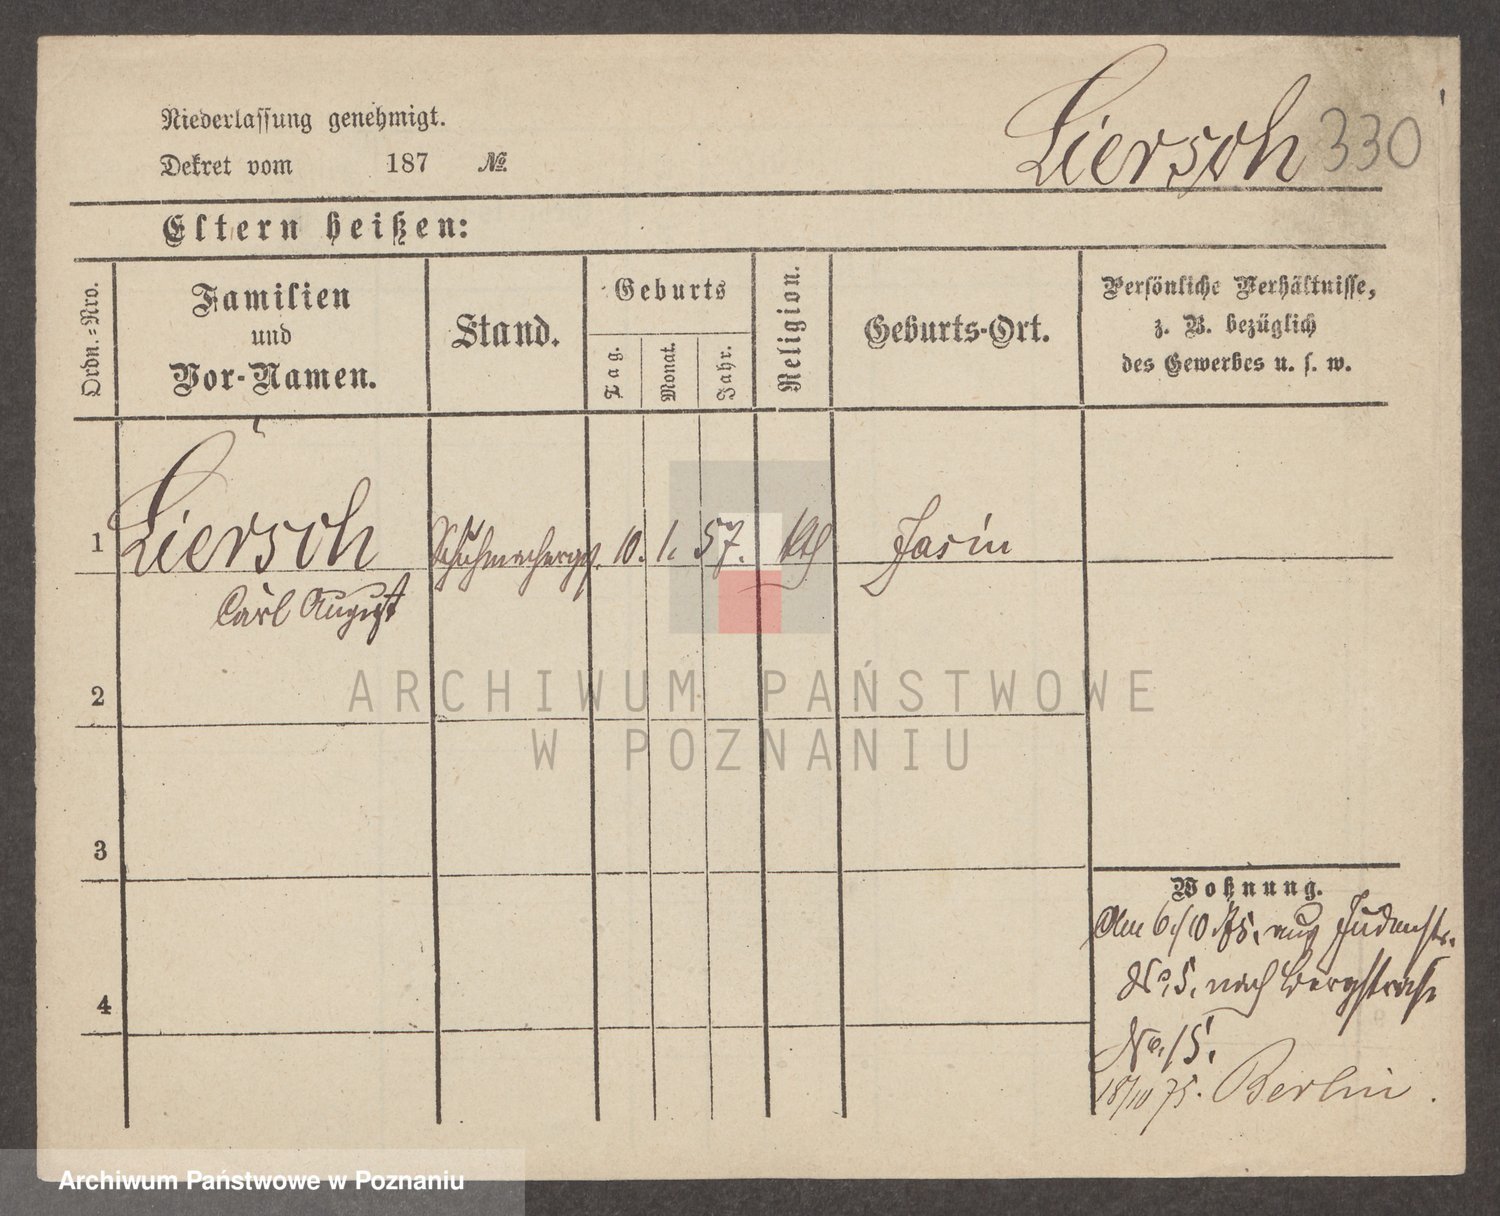 Niederlassung genehmigt.
Dekret vom 187 №
Liersch 330
Eltern heißen:
Ordn.-Nro.
Familien
und
Vor-Namen.
Stand.
Geburts
Tag.
Monat.
Jahr.
Religion.
Geburts-Ort.
Persönliche Verhältnisse,
z. B. bezüglich
des Gewerbes u. s. w.
1 Liersch Schuhmacherges. 10. 1. 57. kth Jasin
Carl August
2
3
4
ARCHIWUM PAŃSTWOWE
W POZNANIU
Wohnung.
Am 6/10 75. aus Judenstr.
No. 5. nach Bergstraße
No. 15.
18/10 75. Berlin.
Archiwum Państwowe w Poznaniu